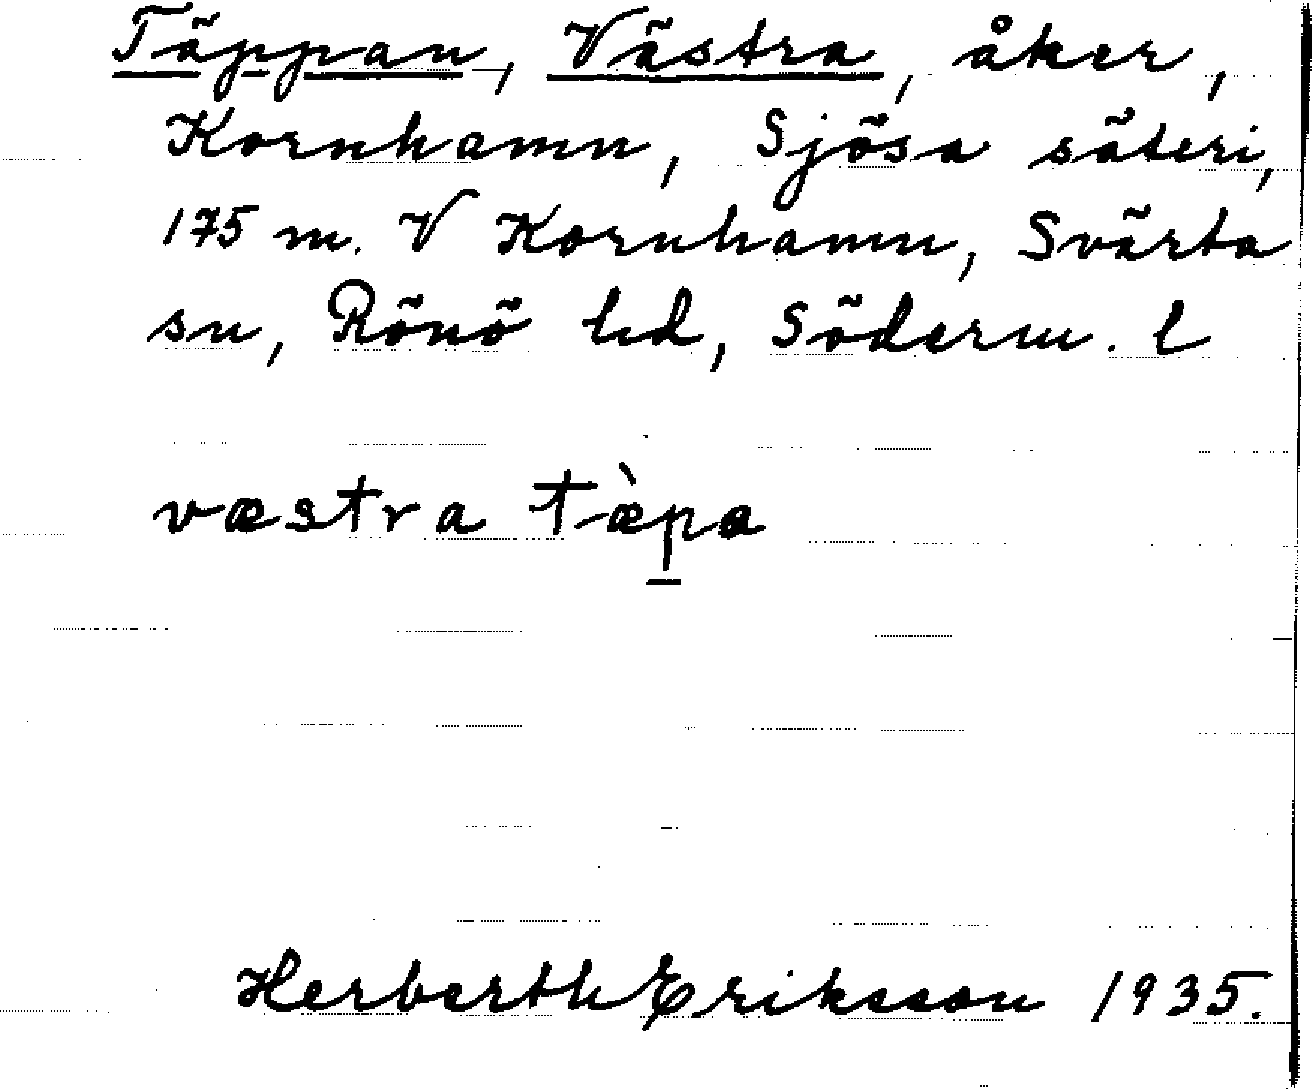 Täppan, Västra, åker,
Kornhamn, Sjösa säteri,
175 m. V Kornhamn, Svärta
sn, Rönö hd, Söderm. l
væstra tæ̀p̲a
Herberth Eriksson 1935.